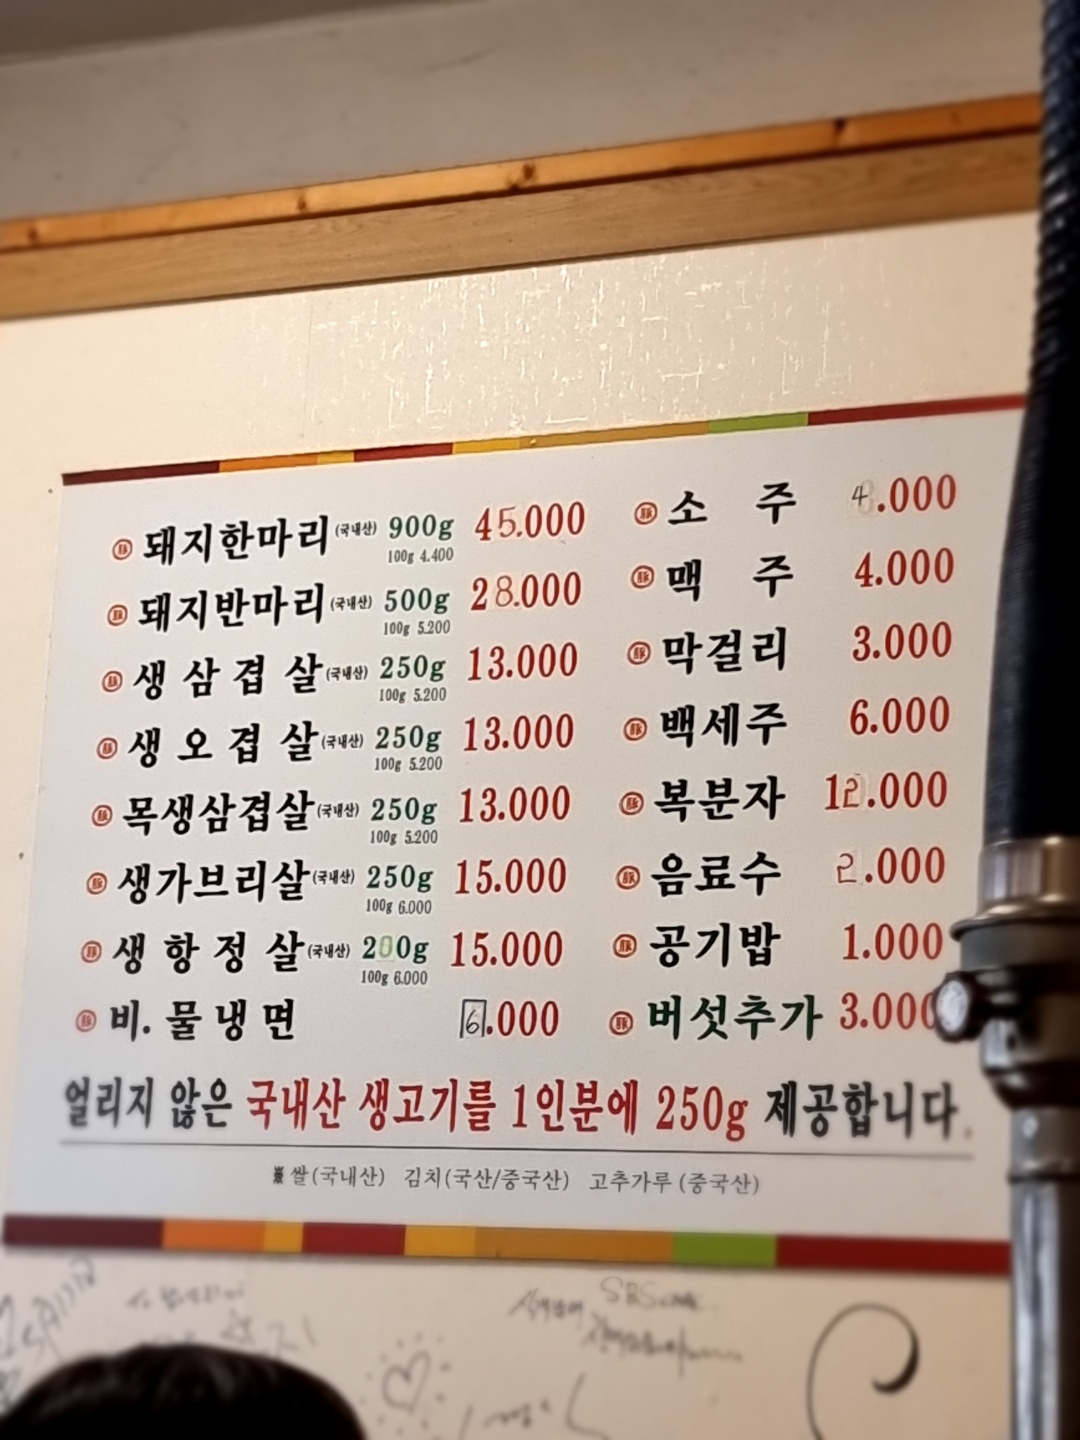 돼지한마리(국내산) 900g 45.000
100g 4.400
돼지반마리(국내산) 500g 28.000
100g 5.200
생삼겹살(국내산) 250g 13.000
100g 5.200
생오겹살(국내산) 250g 13.000
100g 5.200
목생삼겹살(국내산) 250g 13.000
100g 5.200
생가브리살(국내산) 250g 15.000
100g 6.000
생항정살(국내산) 200g 15.000
100g 6.000
비. 물냉면 6.000
소주 4.000
맥주 4.000
막걸리 3.000
백세주 6.000
복분자 12.000
음료수 2.000
공기밥 1.000
버섯추가 3.000
얼리지 않은 국내산 생고기를 1인분에 250g 제공합니다.
※쌀(국내산) 김치(국산/중국산) 고추가루 (중국산)
SBS